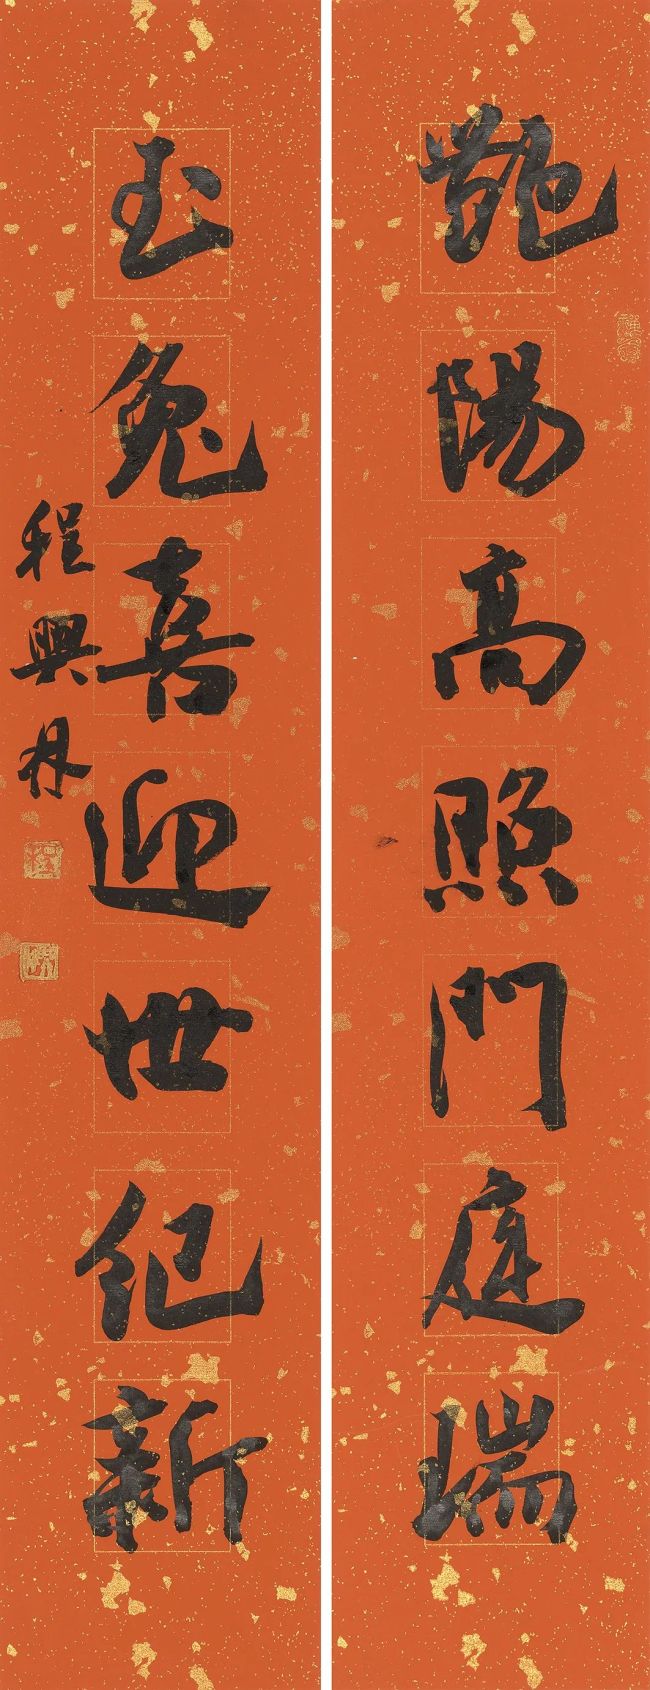 艷陽高照門庭端
玉兔喜迎世紀新
程興林